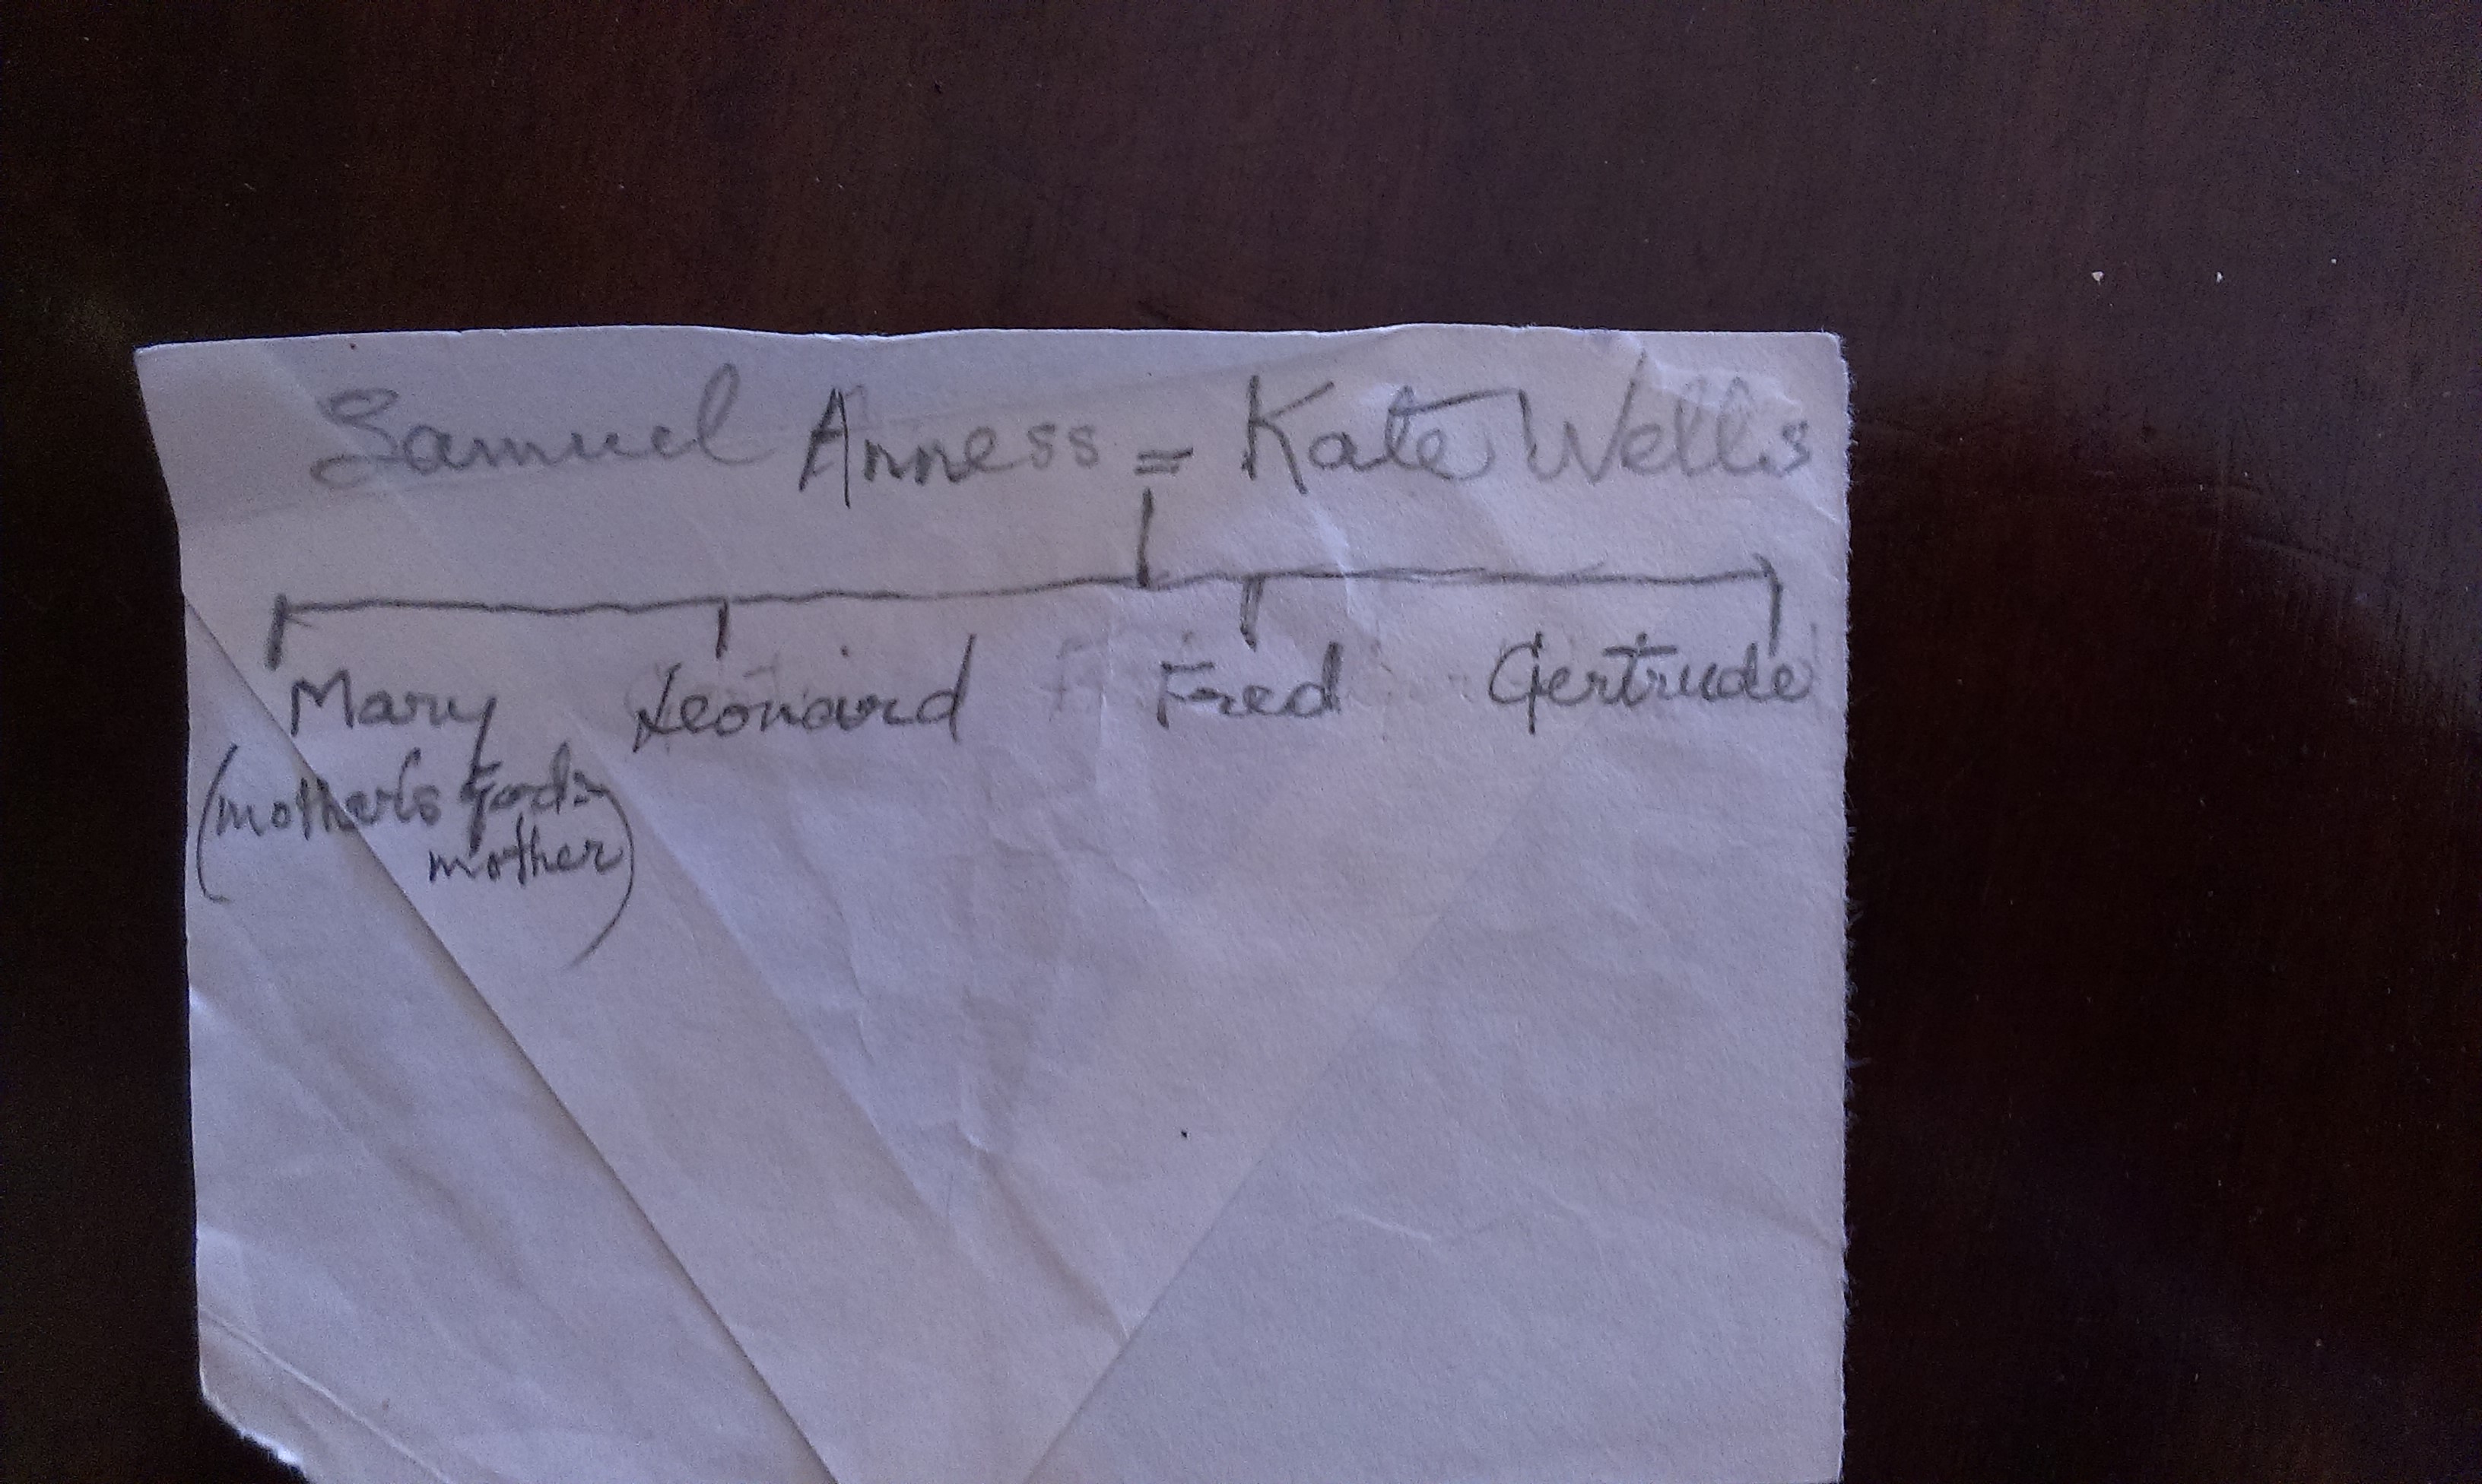 Samuel Anness = Kate Wells
Mary Leonard Fred Gertrude
(mother's god-
mother)